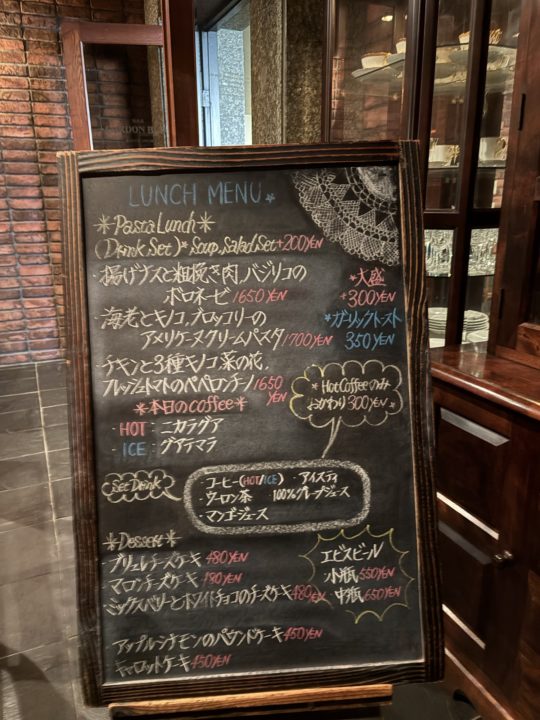 LUNCH MENU
*Pasta Lunch*
(Drink, Set) * Soup, Salad Set +200YEN
・揚げナスと粗挽き肉、バジリコの
ボロネーゼ 1650YEN
・海老とキノコ、ブロッコリーの
アメリケーヌクリームパスタ 1700YEN
・チキンと3種キノコ、菜の花、
フレッシュトマトのペペロンチーノ 1650YEN
*大盛
+300YEN
*ガーリックトースト
350YEN
*本日のcoffee*
・HOT: ニカラグア
・ICE: グアテマラ
*Hot Coffeeのみ
おかわり300YEN*
Set Drink
・コーヒー(HOT/ICE) ・アイスティ
・ウーロン茶 100%グレープジュース
・マンゴジュース
*Dessert*
・ブリュレチーズケーキ 480YEN
・マロンチーズケーキ 480YEN
・ミックスベリーとホワイトチョコのチーズケーキ 480YEN
・アップルシナモンのパウンドケーキ 450YEN
・キャロットケーキ 450YEN
エビスビール
小瓶 550YEN
中瓶 650YEN